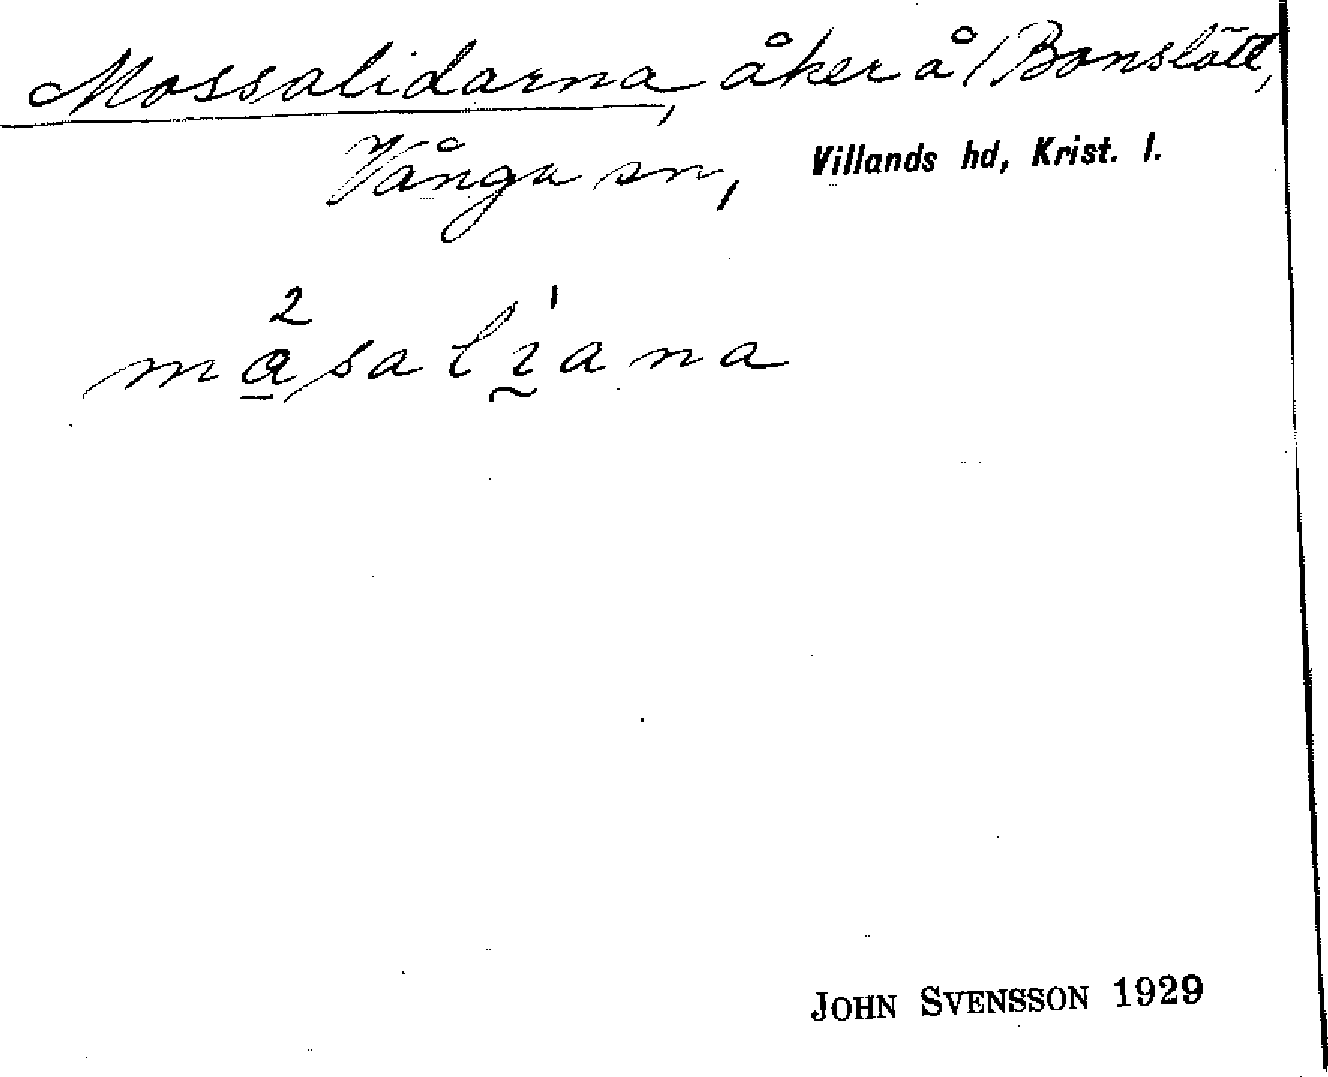 Mossalidarna, åker å Bonslätt,
Vånga sn, Villands hd, Krist. l.
2 1
måsaliana
JOHN SVENSSON 1929